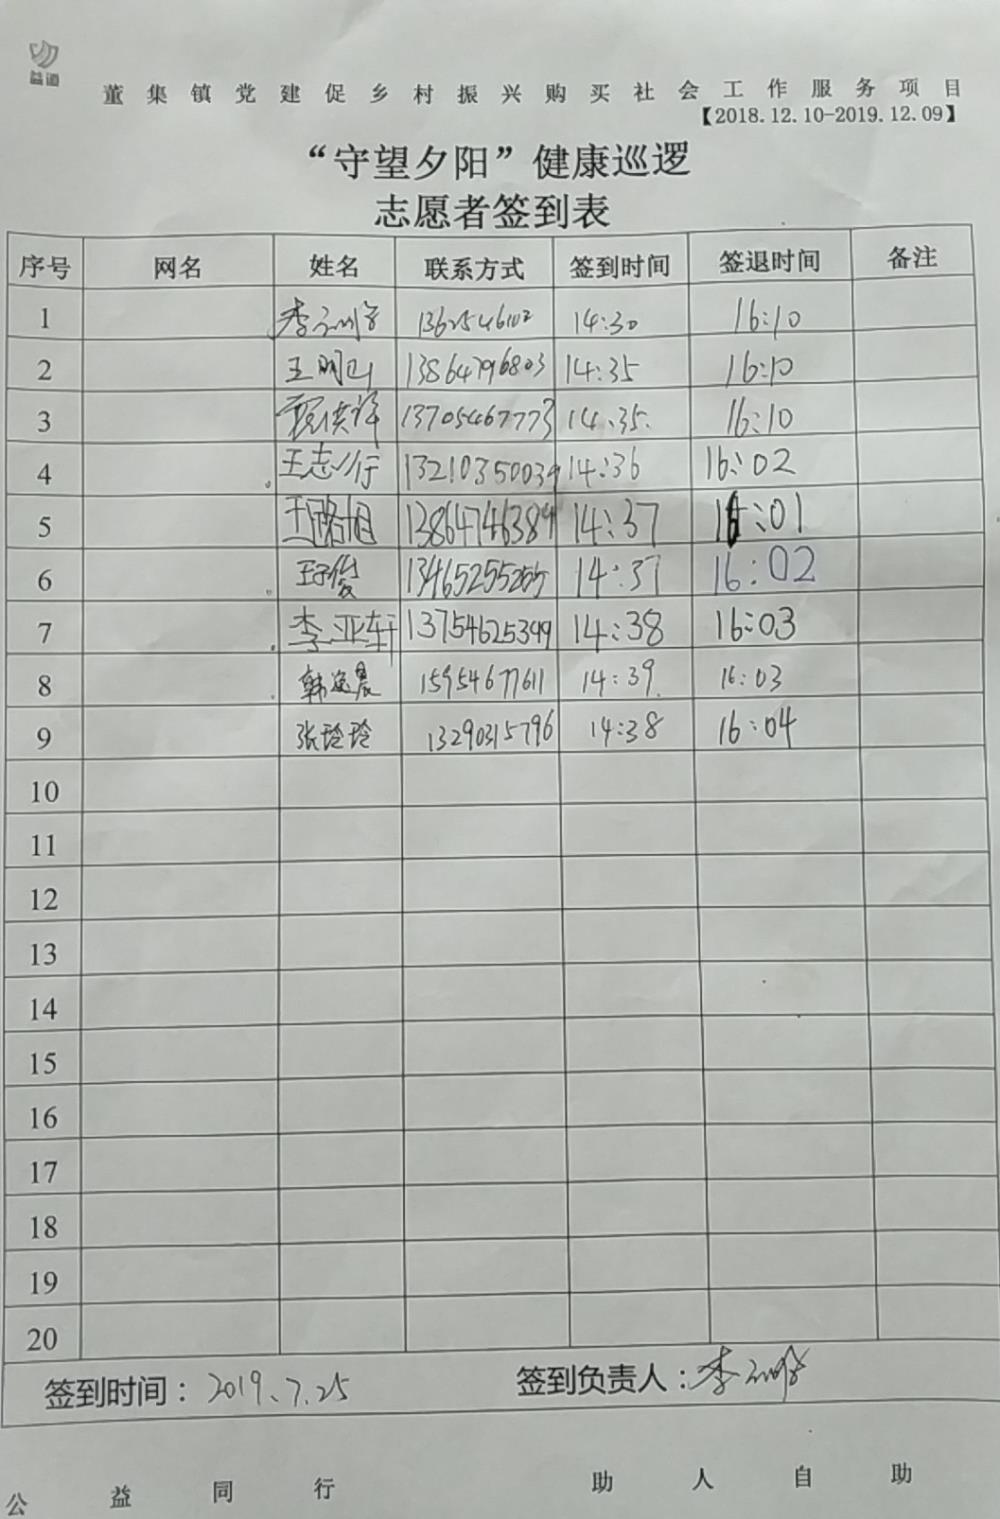 益道
董集镇党建促乡村振兴购买社会工作服务项目
【2018.12.10-2019.12.09】
“守望夕阳”健康巡逻
志愿者签到表
序号 网名 姓名 联系方式 签到时间 签退时间 备注
1 李 14:30 16:10
2 王明 13864796803 14:35 16:10
3 13705467773 14:35 16:10
4 王志行 13210350039 14:36 16:02
5 王璐旭 13864746389 14:37 16:01
6 王子俊 13465255265 14:37 16:02
7 李亚轩 13754625399 14:38 16:03
8 韩逸晨 15954677611 14:39 16:03
9 张玲玲 13290315796 14:38 16:04
10
11
12
13
14
15
16
17
18
19
20
签到时间：2019.7.25 签到负责人：李
公益同行 助人自助